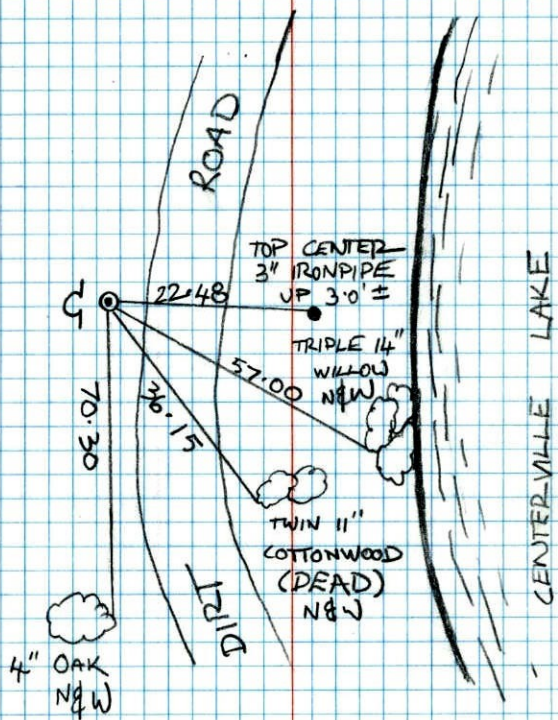 ROAD
TOP CENTER
3" IRONPIPE
UP 3.0' ±
22.48
TRIPLE 14"
WILLOW
N&W
57.00
36.15
70.30
TWIN 11"
COTTONWOOD
(DEAD)
N&W
DIRT
4" OAK
N&W
CENTERVILLE LAKE